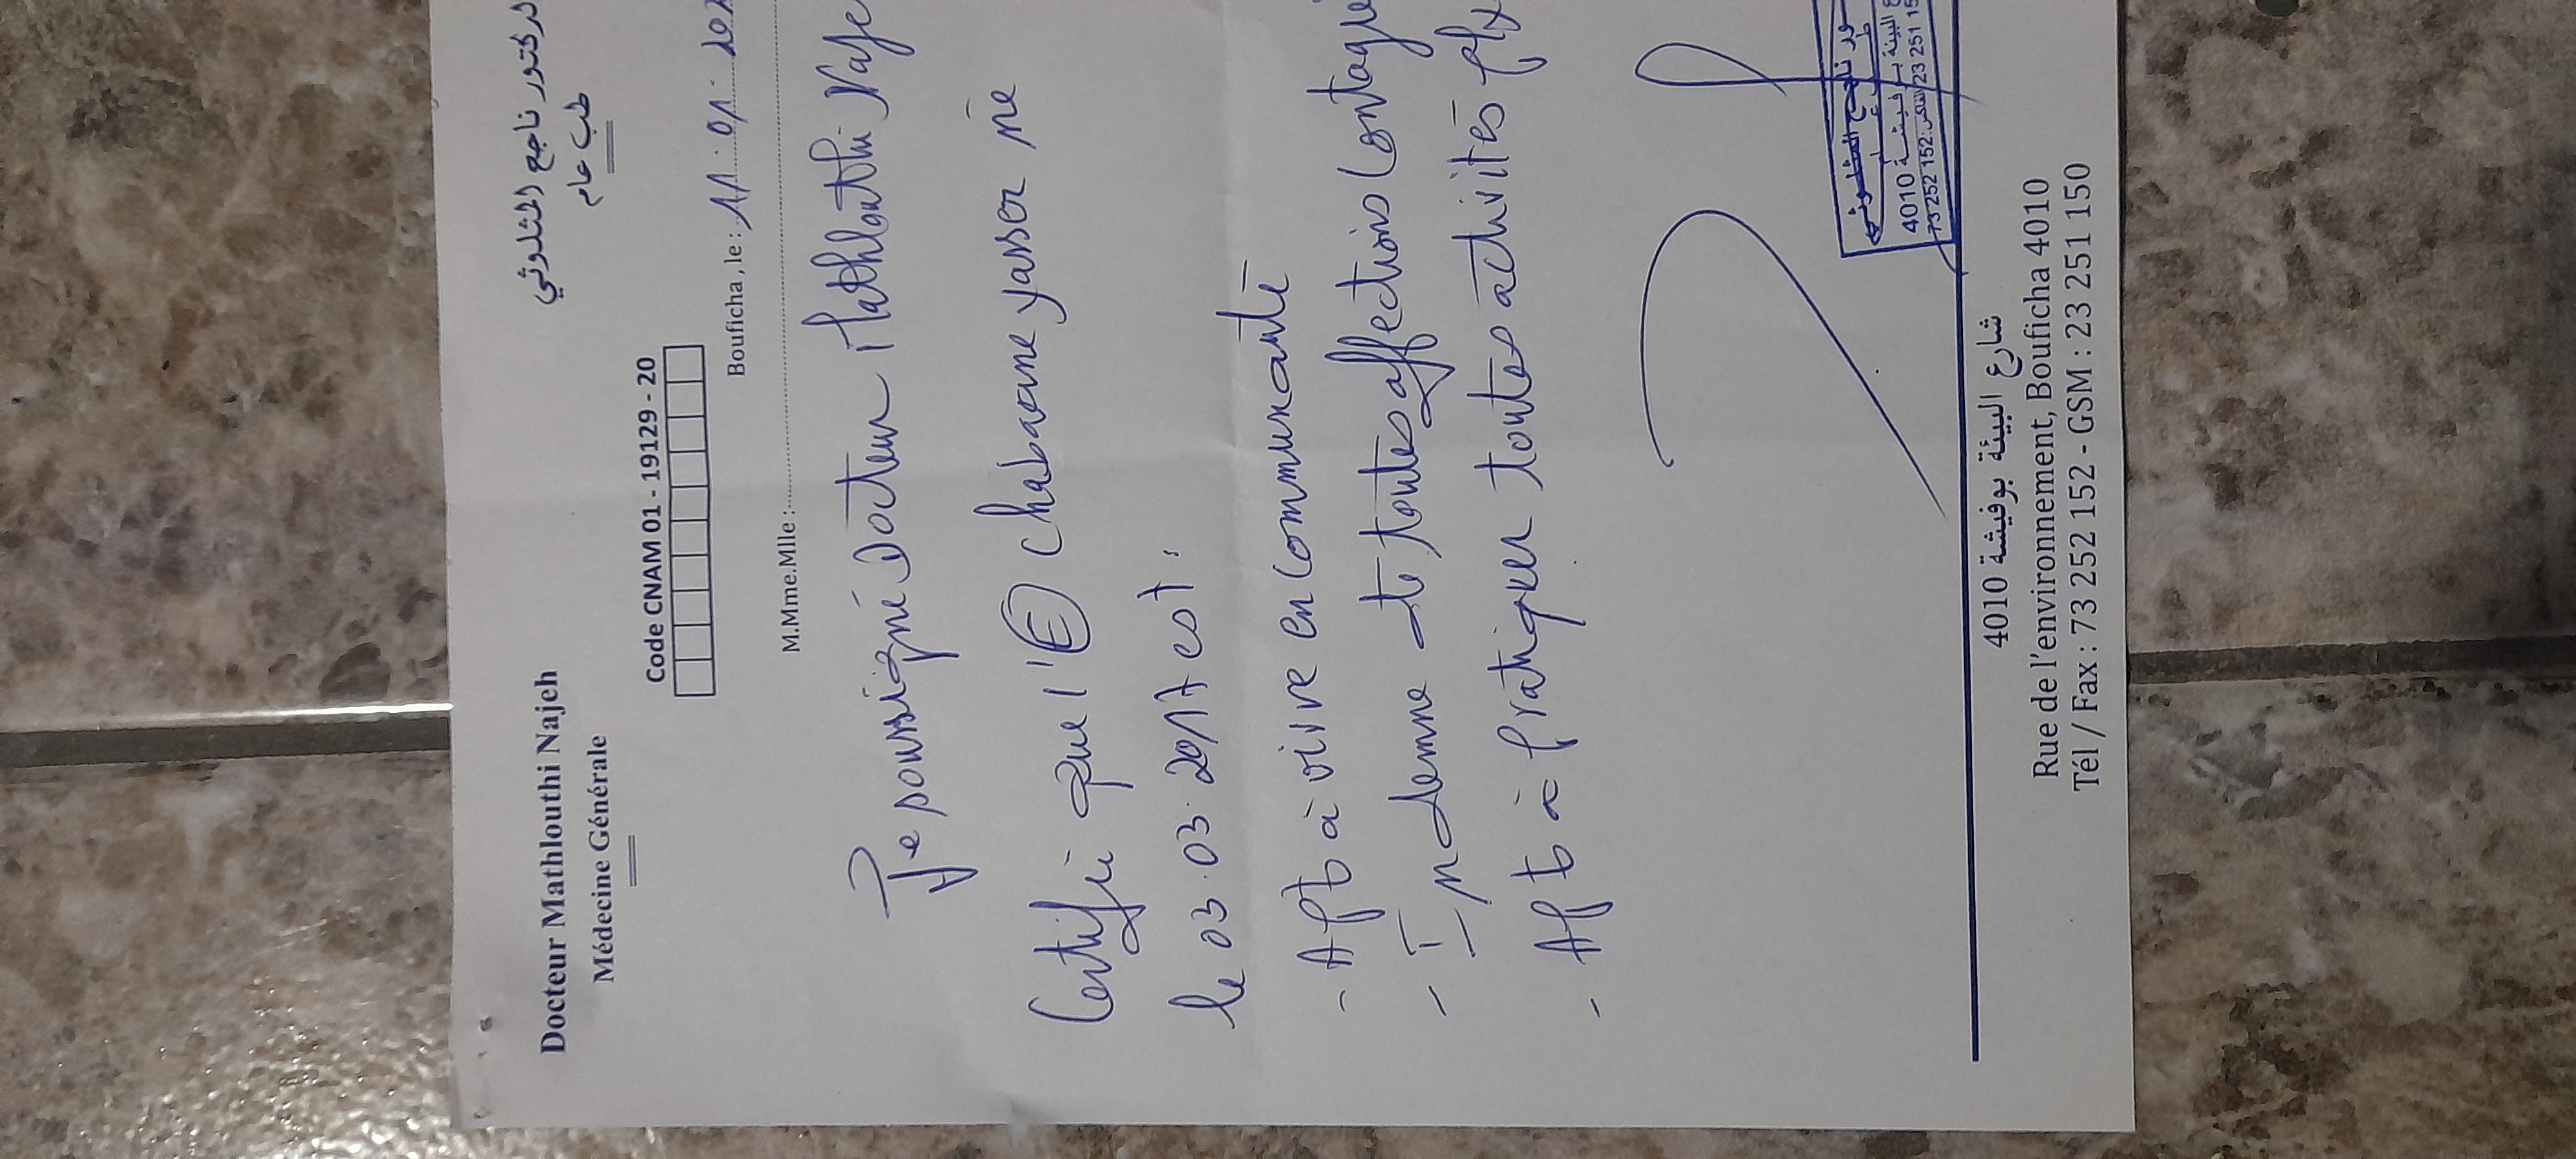 Docteur Mathlouthi Najeh
Médecine Générale
الدكتور ناجح المثلوثي
طب عام
Code CNAM 01 - 19129 - 20
Bouficha, le : 11.01.202
M.Mme.Mlle :
Je soussigné Docteur Mathlouthi Naje
Certifie que l'(E) Chabaane yasser né
le 03.03.2017 est :
- Apt à vivre en Communauté
- Indemne de toutes affections Contagie
- Apt à pratiquer toutes activités phy
4010
73 252 152 23 251 15
شارع البيئة بوفيشة 4010
Rue de l'environnement, Bouficha 4010
Tél / Fax : 73 252 152 - GSM : 23 251 150